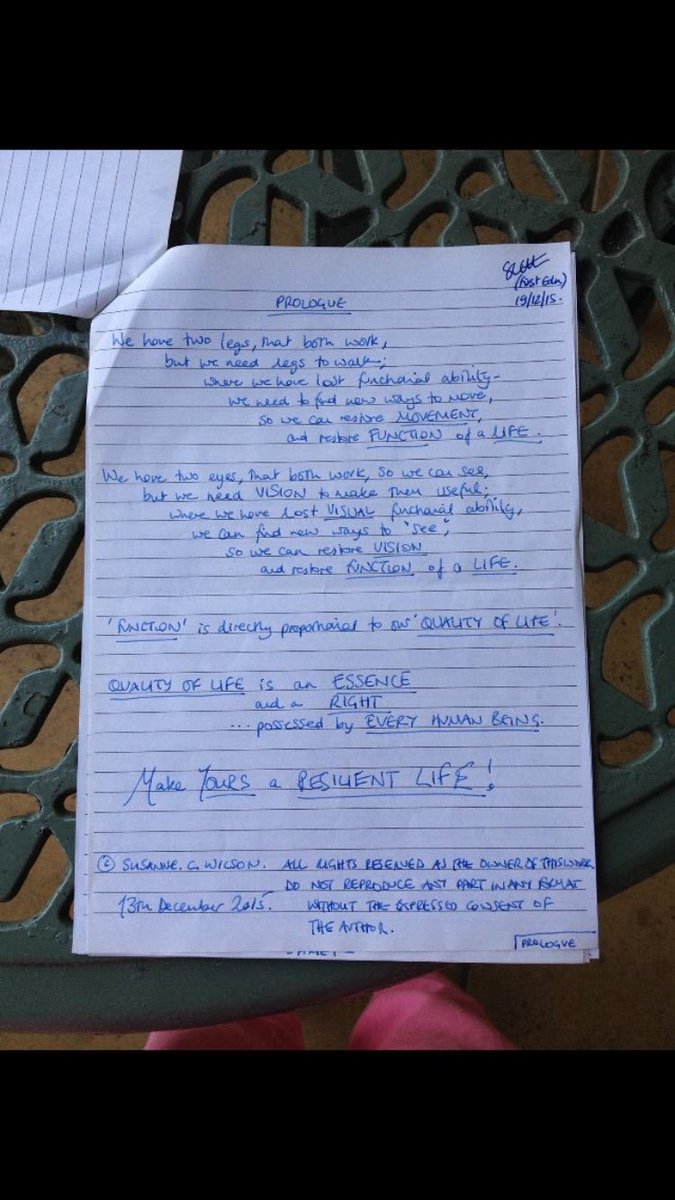 (Post Edn)
19/12/15.
PROLOGUE
We have two legs, that both work,
but we need legs to walk;
where we have lost functional ability-
we need to find new ways to move,
so we can restore MOVEMENT,
and restore FUNCTION of a LIFE.
We have two eyes, that both work, so we can see,
but we need VISION to make them useful;
where we have lost VISUAL functional ability,
we can find new ways to "see",
so we can restore VISION
and restore FUNCTION of a LIFE.
'FUNCTION' is directly proportional to our 'QUALITY OF LIFE'.
QUALITY OF LIFE is an ESSENCE
and a RIGHT
... possessed by EVERY HUMAN BEING.
Make YOURS a RESILIENT LIFE!
© SUSANNE. C. WILSON. ALL RIGHTS RESERVED AS THE OWNER OF THIS WORK
DO NOT REPRODUCE ANY PART IN ANY FORMAT
13th December 2015. WITHOUT THE EXPRESSED CONSENT OF
THE AUTHOR.
PROLOGUE